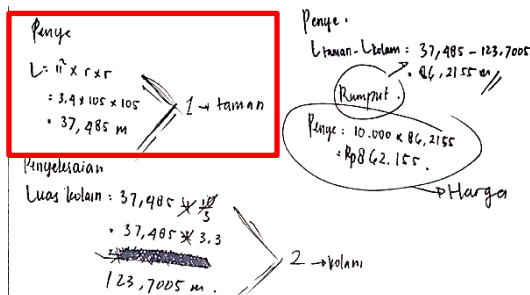 Penye
L = π² x r x r
= 3.4 x 105 x 105
= 37,485 m
1 → taman
Penyelesaian
Luas kolam : 37,485 x 10/3
= 37,485 x 3.3
123,7005 m.
2 → kolam
Penye.
L taman - L kolam : 37,485 - 123,7005
= 86,2155 m //
Rumput.
Penye : 10.000 x 86,2155
= Rp862.155.
→ Harga